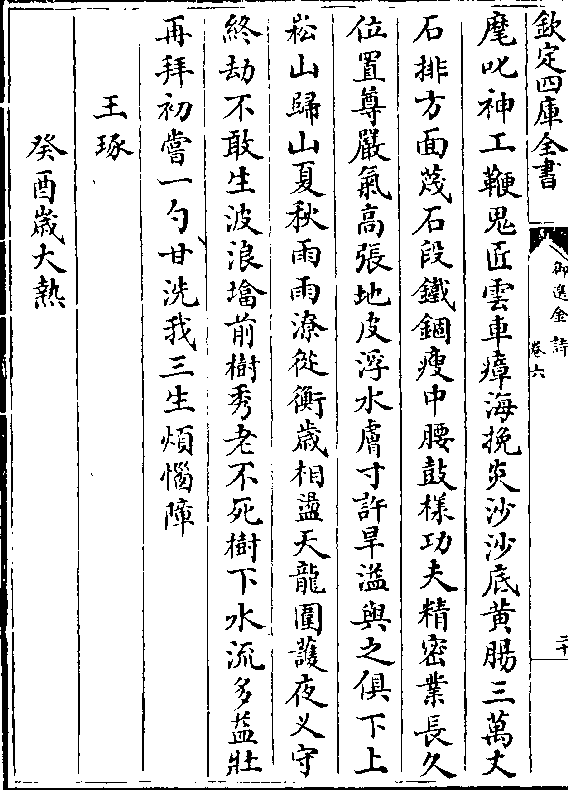 欽定四庫全書
御選金詩
卷六
二十
麾叱神工鞭鬼匠雲車瘴海挽炎沙沙底黄腸三萬丈
石排方面蔑石段鐵錮瘦中腰鼓樣功夫精密業長久
位置尊嚴氣高張地皮浮水膚寸許旱溢與之俱下上
崧山歸山夏秋雨雨潦從衡歳相盪天龍圍護夜乂守
終劫不敢生波浪墖前樹秀老不死樹下水流多益壯
再拜初嘗一勺甘洗我三生煩惱障
王琢
癸酉歳大熱